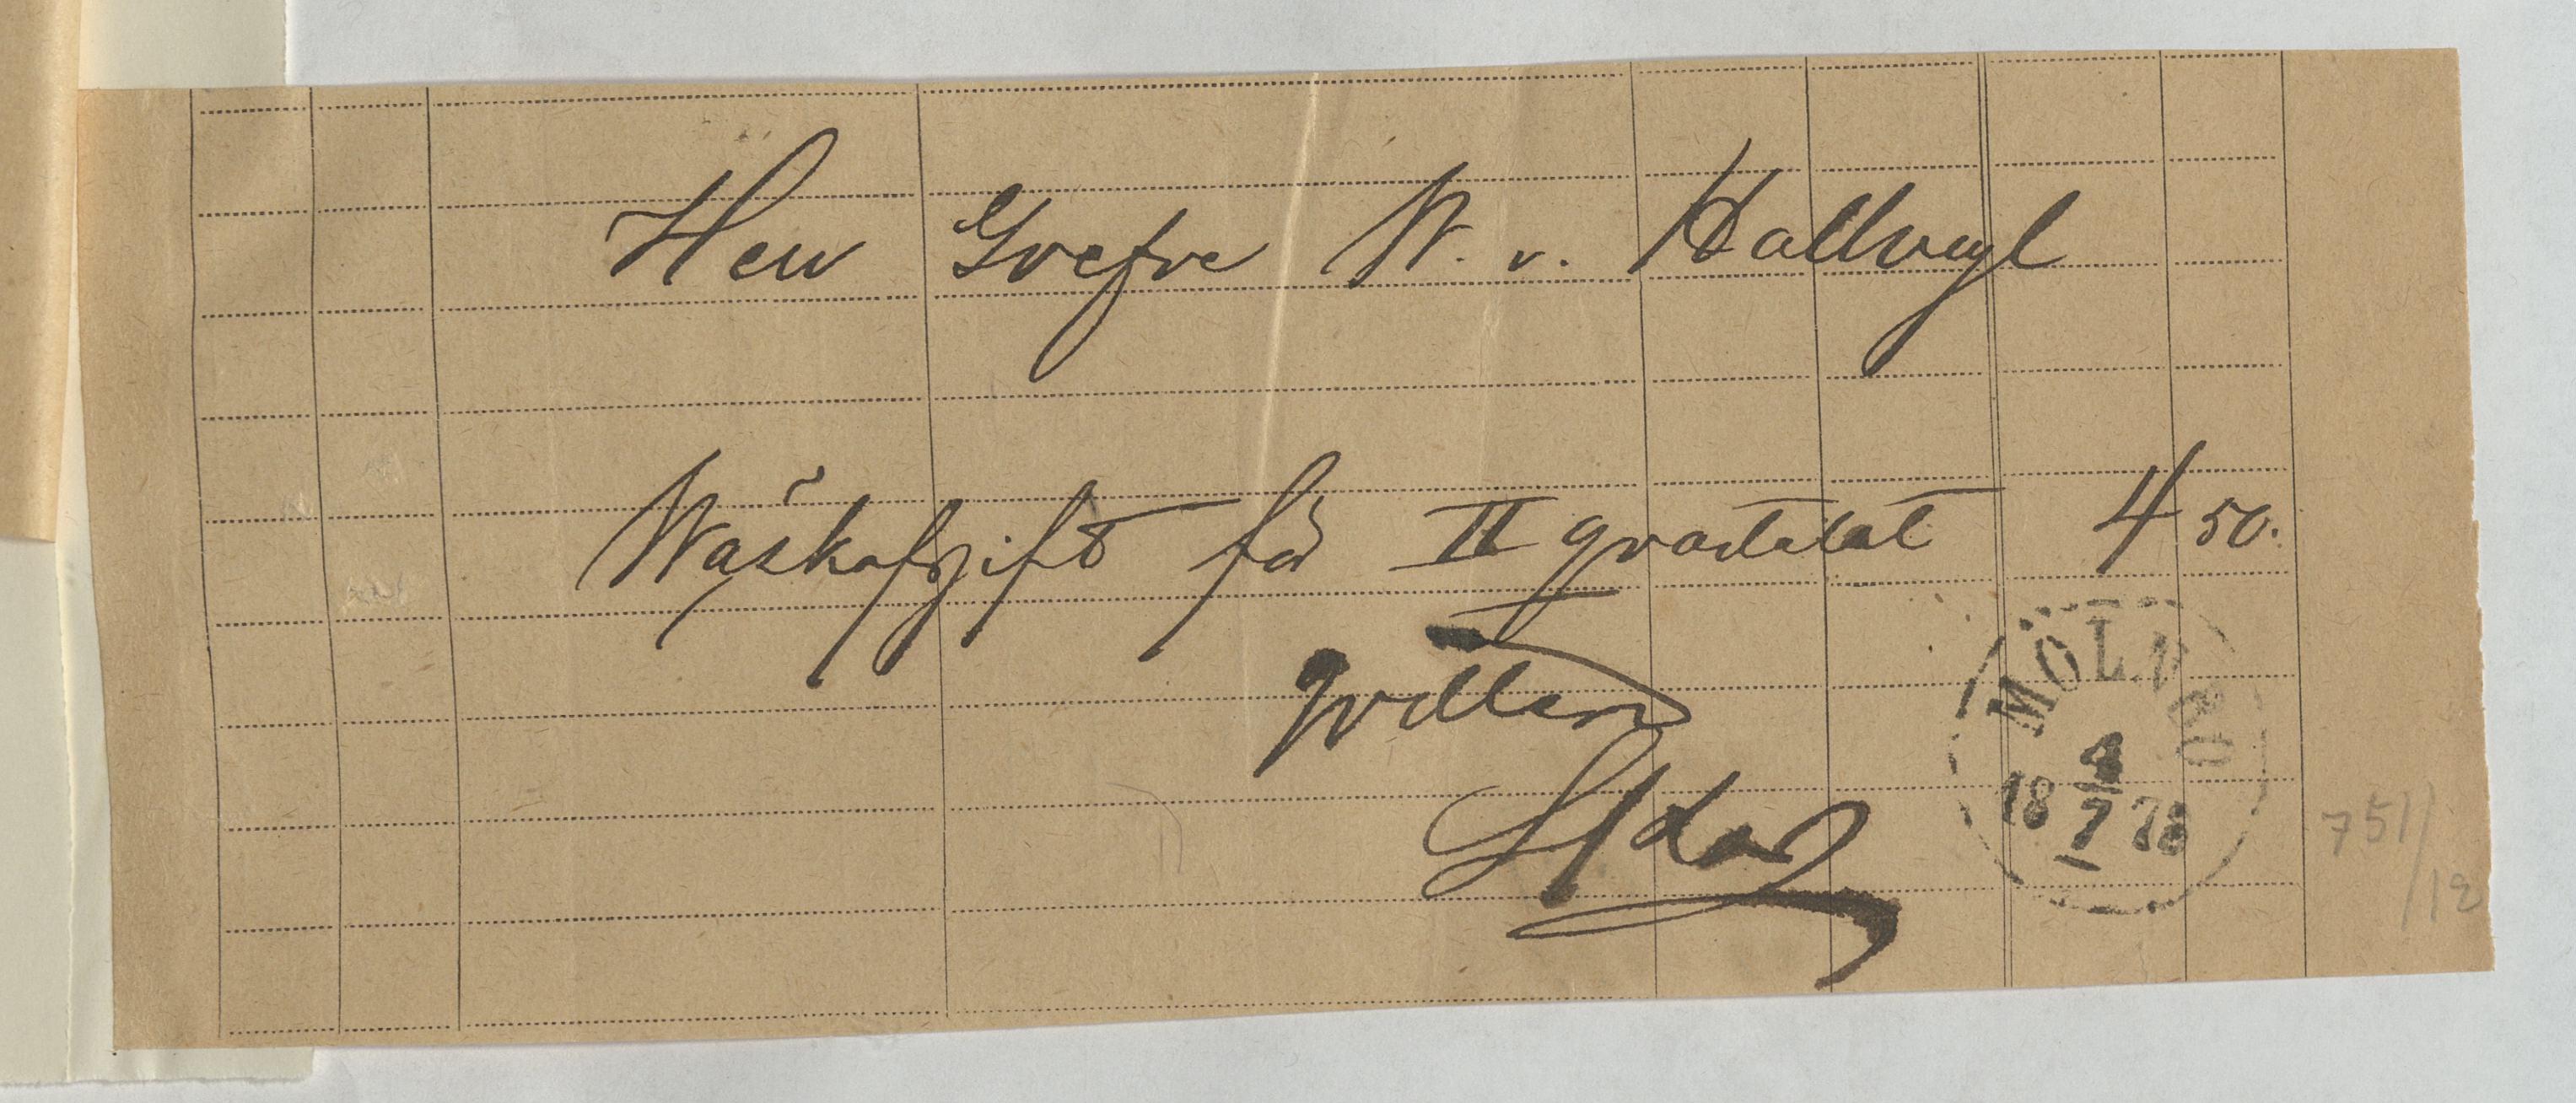 Herr Grefve W. v. Hallwyl
Wäskafgift för II qvartalet 4 50.
Qvitteras
MÖLNBO
4
18 7 78
751/
/12